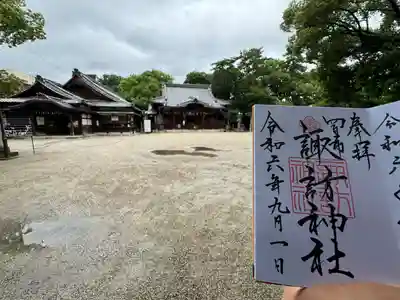 奉拝
諏訪神社
令和六年九月一日
令和六